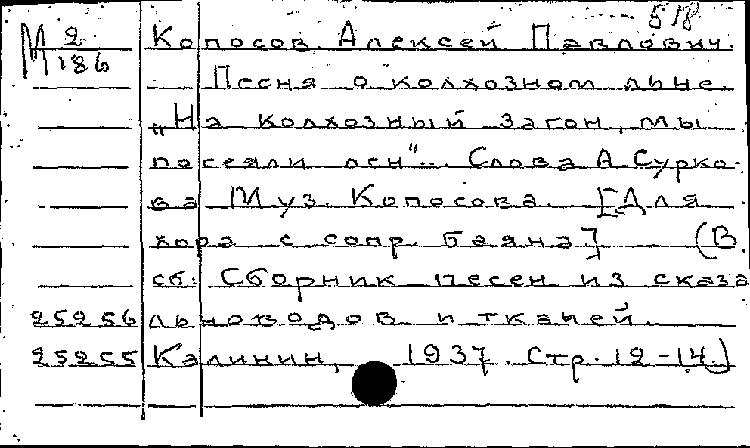 518
М 2/186 Копосов Алексей Павлович.
Песня о колхозном льне
„На колхозный загон, мы
посеяли лен"... Слова А. Сурко-
ва Муз. Копосова. [Для
хора с сопр. баяна] (В
сб: Сборник песен из сказа
25256 льноводов и ткачей.
25255 Калинин, 1937. Стр. 12-14.)